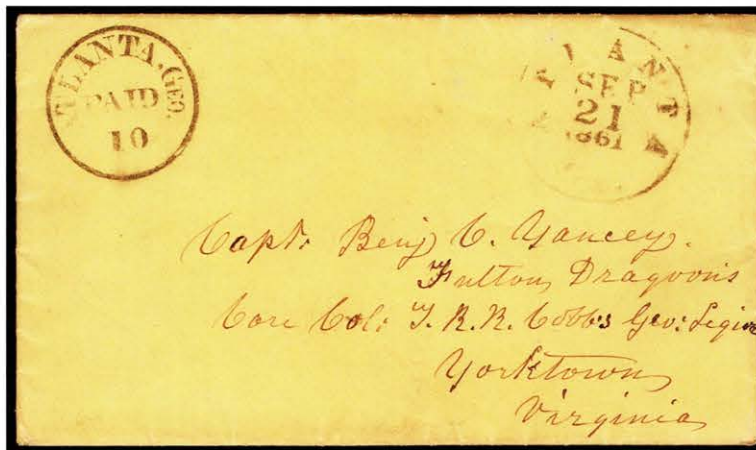 ATLANTA, GEO.
PAID
10
ATLANTA
SEP
21
1861
Capt: Benj C. Yancey.
Fulton Dragoons
Care Col: T. R. R. Cobb's Geo: Legion
Yorktown
Virginia